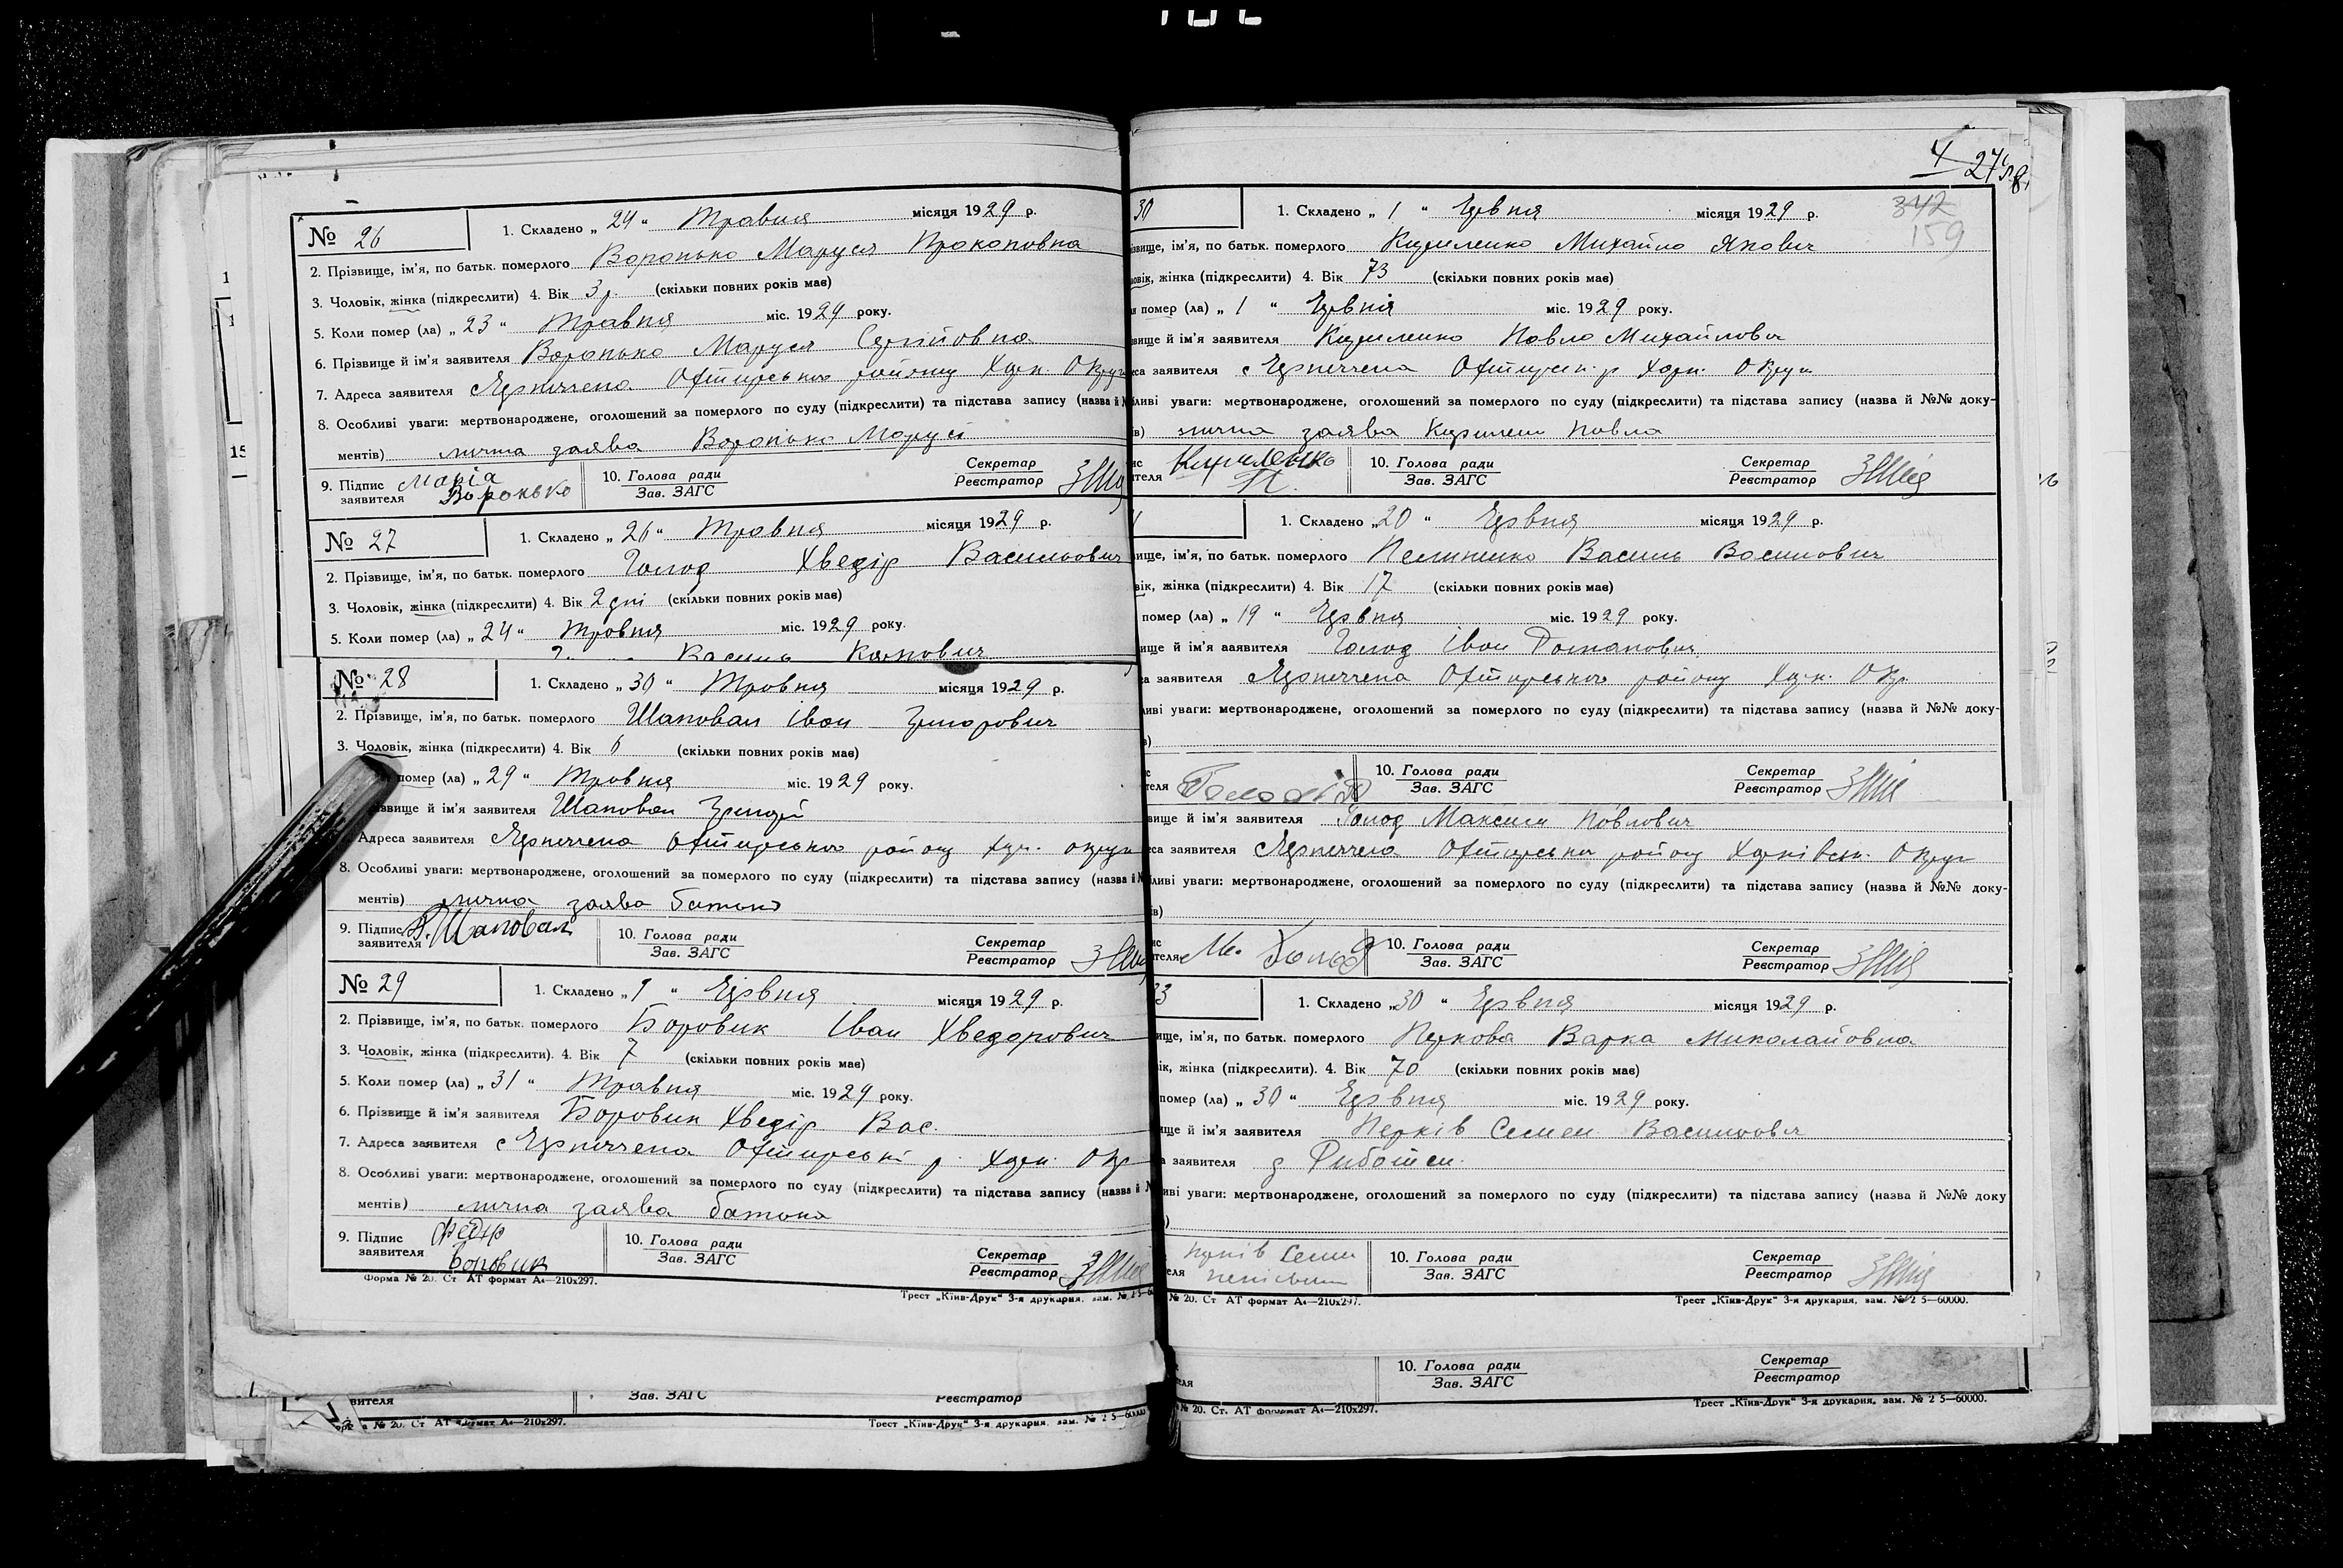 № 26
1. Складено „ 24 “ Травня місяця 1929 р.
2. Прізвище, ім'я, по батьк. померлого Воронько Маруся Прокоповна
3. Чоловік, жінка (підкреслити) 4. Вік 3 р. (скільки повних років має)
5. Коли помер (ла) „ 23 “ Травня міс. 1929 року.
6. Прізвище й ім'я заявителя Воронько Маруся Сергійовна
7. Адреса заявителя Охтирського району Харк. Округи
8. Особливі уваги: мертвонароджене, оголошений за померлого по суду (підкреслити) та підстава запису (назва й
ментів) лична заява Воронько Марусі
9. Підпис заявителя Марія Воронько
10. Голова ради
Зав. ЗАГС
Секретар
Реєстратор
№ 27
1. Складено „ 26 “ Травня місяця 1929 р.
2. Прізвище, ім'я, по батьк. померлого Голод Хведір Васильович
3. Чоловік, жінка (підкреслити) 4. Вік 2 дні (скільки повних років має)
5. Коли помер (ла) „ 24 “ Травня міс. 1929 року.
Василь
№ 28
1. Складено „ 30 “ Травня місяця 1929 р.
2. Прізвище, ім'я, по батьк. померлого Шаповал Іван Григорович
3. Чоловік, жінка (підкреслити) 4. Вік 6 (скільки повних років має)
помер (ла) „ 29 “ Травня міс. 1929 року.
звище й ім'я заявителя Шаповал Григорій
Адреса заявителя Охтирського району Харк. округи
8. Особливі уваги: мертвонароджене, оголошений за померлого по суду (підкреслити) та підстава запису (назва й
ментів) лична заява батька
9. Підпис заявителя Шаповал
10. Голова ради
Зав. ЗАГС
Секретар
Реєстратор
№ 29
1. Складено „ 1 “ Червня місяця 1929 р.
2. Прізвище, ім'я, по батьк. померлого Боровик Іван Хведорович
3. Чоловік, жінка (підкреслити). 4. Вік 7 (скільки повних років має)
5. Коли помер (ла) „ 31 “ Травня міс. 1929 року.
6. Прізвище й ім'я заявителя Боровик Хведір Вас.
7. Адреса заявителя с Охтирські р. Харк. Окр
8. Особливі уваги: мертвонароджене, оголошений за померлого по суду (підкреслити) та підстава запису (назва й
ментів) лична заява батька
9. Підпис заявителя Боровик
10. Голова ради
Зав. ЗАГС
Секретар
Реєстратор
Форма № 20. Ст АТ формат А4—210х297.
Трест „Київ-Друк“ 3-я друкарня, зам. №
вителя
Зав. ЗАГС
Реєстратор
№ 20. Ст. АТ формат А4—210х297.
Трест „Київ-Друк“ 3-я друкарня, зам. № 2 5—60000
342
159
30
1. Складено „ 1 “ Червня місяця 1929 р.
звище, ім'я, по батьк. померлого Кириленко Михайло Якович
ловік, жінка (підкреслити) 4. Вік 73 (скільки повних років має)
помер (ла) „ 1 “ Червня міс. 1929 року.
вище й ім'я заявителя Кириленко Павло Михайлович
са заявителя с Охтирськ. р Харк. Округи
ливі уваги: мертвонароджене, оголошений за померлого по суду (підкреслити) та підстава запису (назва й №№ доку-
ів) лична заява Кирилен Павла
ителя Кириленко П.
10. Голова ради
Зав. ЗАГС
Секретар
Реєстратор
1. Складено „ 20 “ Червня місяця 1929 р.
вище, ім'я, по батьк. померлого Василь Василович
вік, жінка (підкреслити) 4. Вік 17 (скільки повних років має)
помер (ла) „ 19 “ Червня міс. 1929 року.
ище й ім'я заявителя Голод Іван
са заявителя Охтирського району Харк. Окр.
ливі уваги: мертвонароджене, оголошений за померлого по суду (підкреслити) та підстава запису (назва й №№ доку-
в)
теля
10. Голова ради
Зав. ЗАГС
Секретар
Реєстратор
вище й ім'я заявителя Голод Максим Павлович
са заявителя Охтирськи району Харківськ. Округи
ливі уваги: мертвонароджене, оголошений за померлого по суду (підкреслити) та підстава запису (назва й №№ доку-
ів)
теля М. Голод
10. Голова ради
Зав. ЗАГС
Секретар
Реєстратор
33
1. Складено „ 30 “ Червня місяця 1929 р.
ище, ім'я, по батьк. померлого Перкова Варка Миколайовна
ік, жінка (підкреслити). 4. Вік 70 (скільки повних років має)
помер (ла) „ 30 “ Червня міс. 1929 року.
ище й ім'я заявителя Перків Семен Васильович
а заявителя
иві уваги: мертвонароджене, оголошений за померлого по суду (підкреслити) та підстава запису (назва й №№ доку
)
еля
10. Голова ради
Зав. ЗАГС
Секретар
Реєстратор
№ 20. Ст АТ формат А4—210х297.
Трест „Київ-Друк“ 3-я друкарня, зам. № 2 5—60000.
10. Голова ради
Зав. ЗАГС
Секретар
Реєстратор
№ 20. Ст. АТ формат А4—210х297.
Трест „Київ-Друк“ 3-я друкарня, зам. № 2 5—60000.